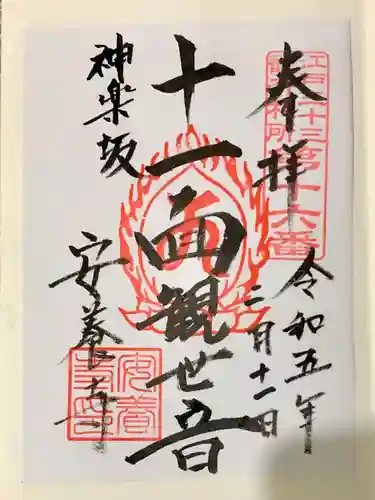 奉拝
江戸三十三
観音札所
第十六番
令和五年
二月十一日
十一面観世音
神楽坂
安養寺
安養
寺印